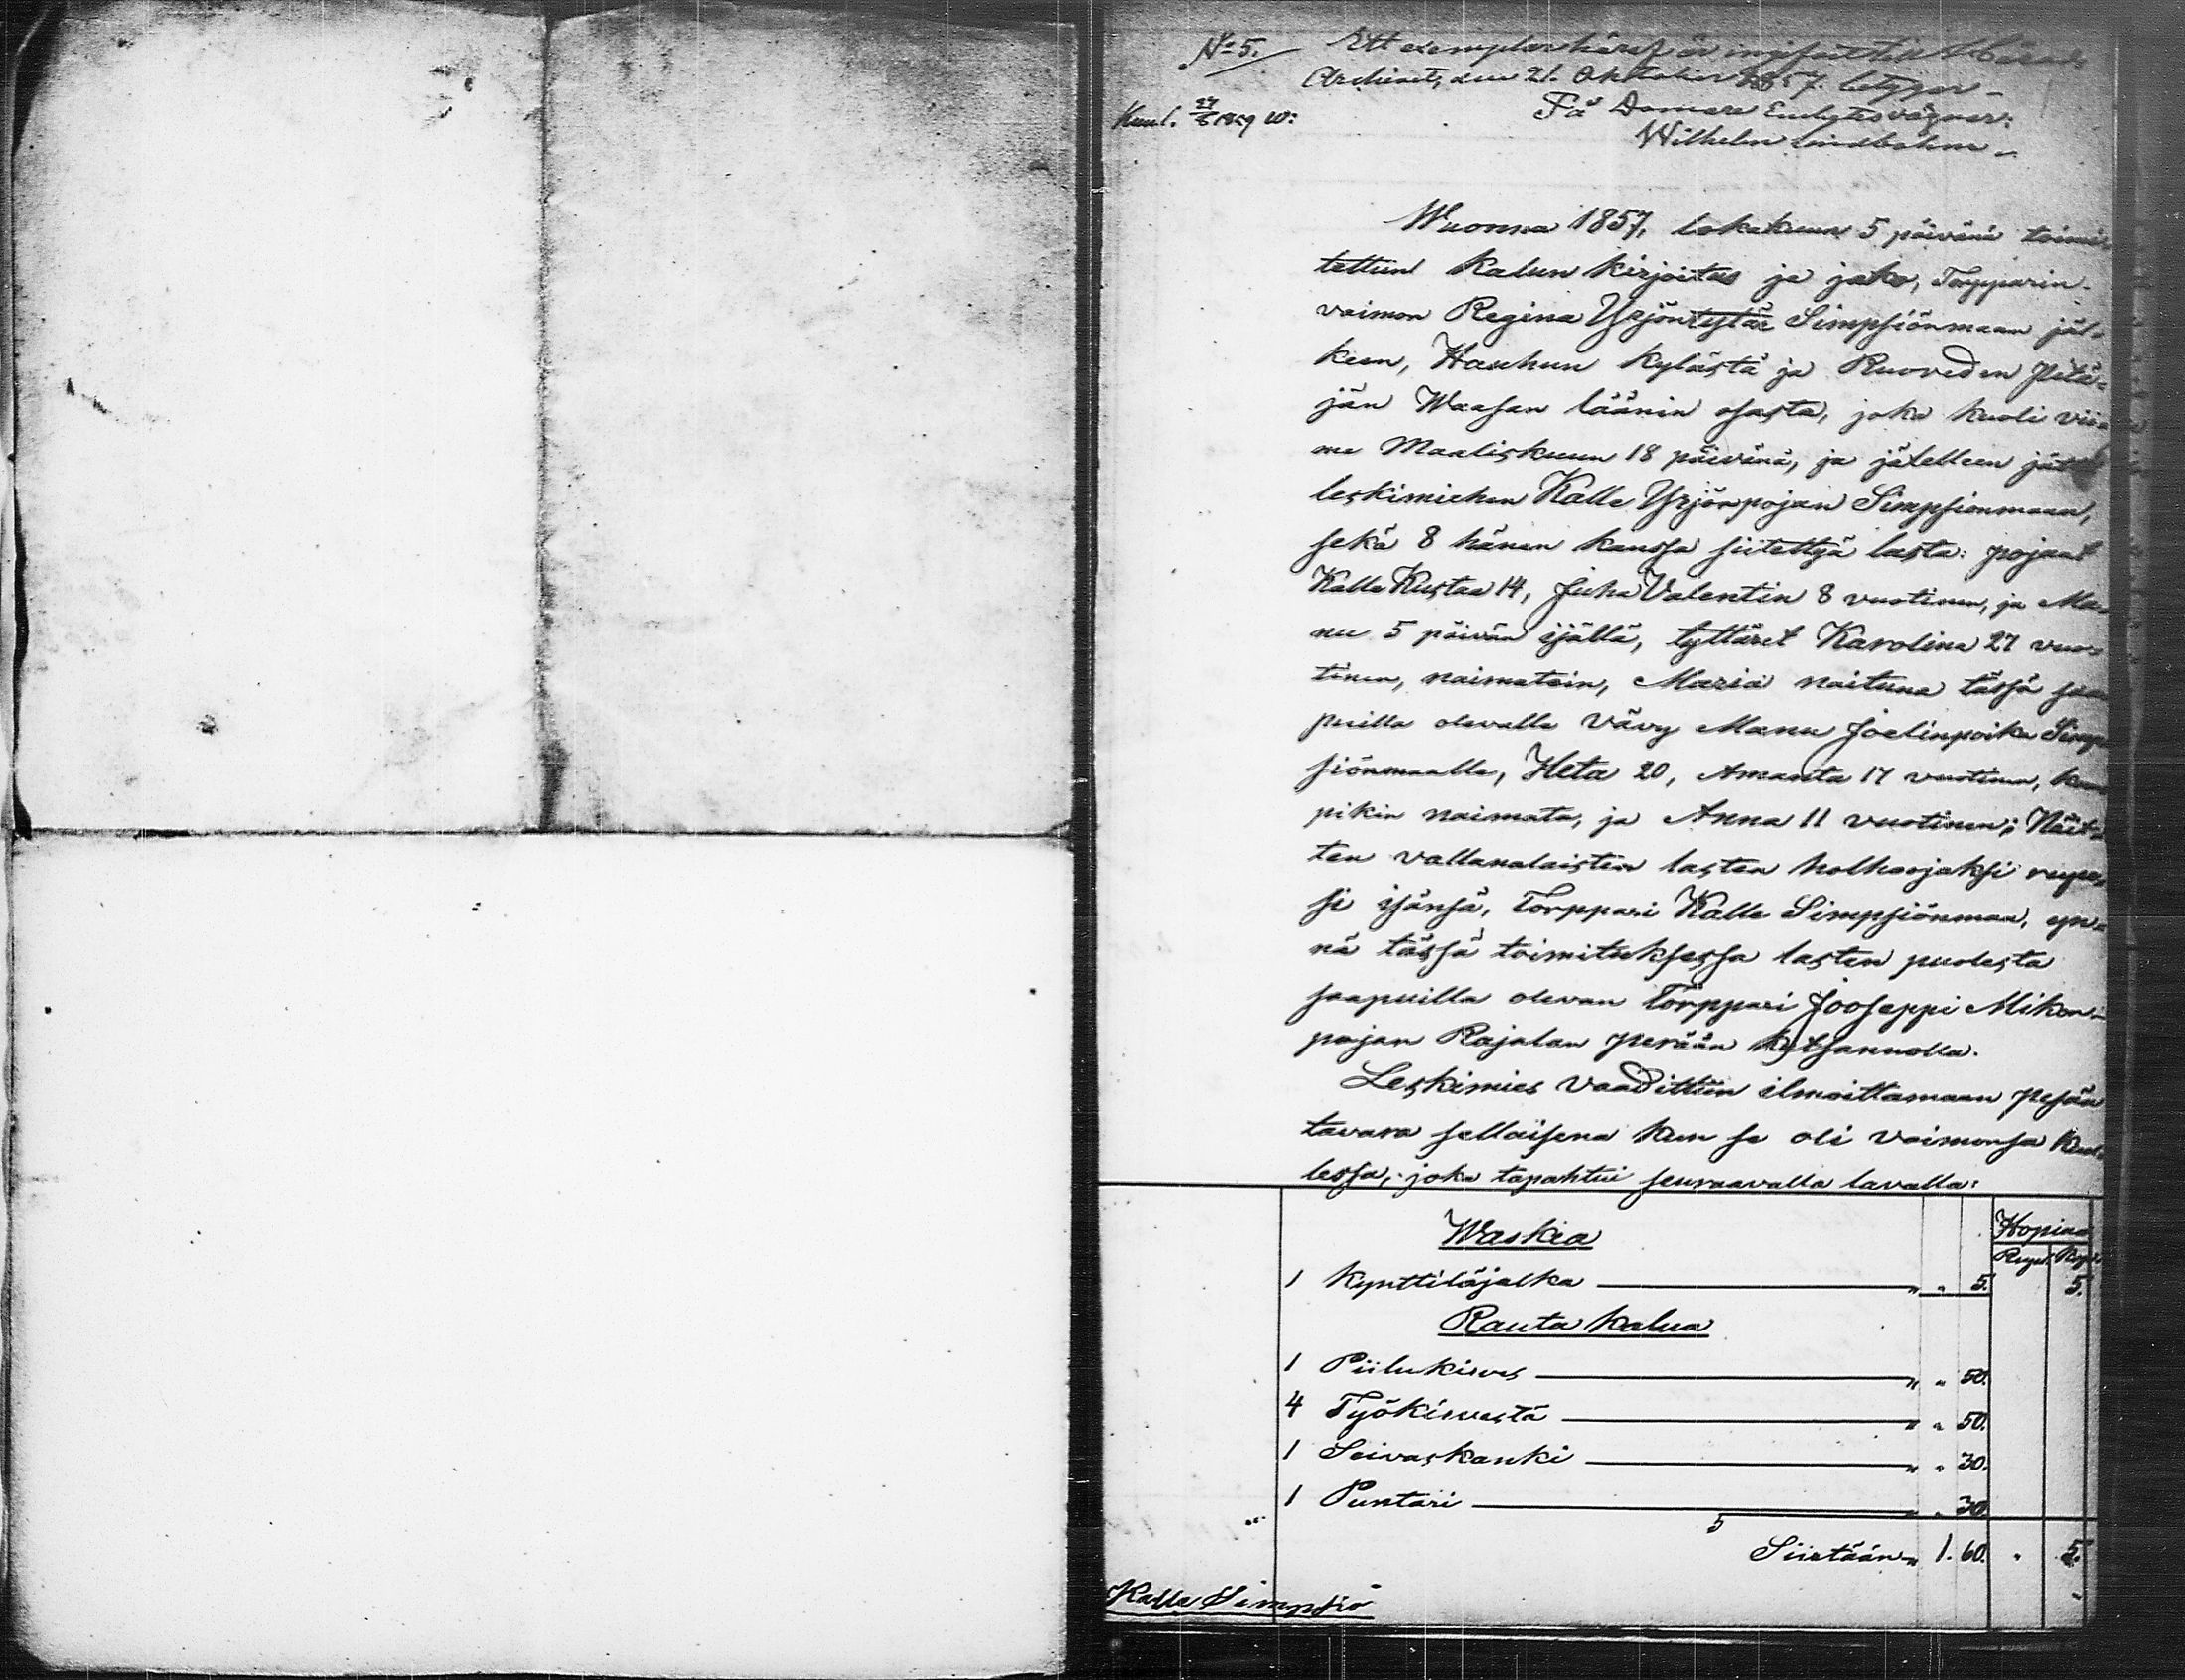 No 5. Ett exemplar häraf är ingifvet till Härads
Archivet, den 21. Oktober 1857. betygar
På Domare Embetsvägnar:
Kuul. 27/5 1859 W:
Wilhelm Lindbohm
Wuonna 1857, lokakuun 5 päivänä toimi-
tettiin kalun kirjoitus ja jako, Torpparin-
vaimon Regina Yrjöntytär Simpsiönmaan jäl-
keen, Hauhun kylästä ja Ruoveden pitä-
jän Waasan läänin osasta, joka kuoli vii-
me Maaliskuun 18 päivänä, ja jälelleen jätti
leskimiehen Kalle Yrjönpojan Simpsionmaan,
sekä 8 hänen kanssa siitettyä lasta: pojaat
Kalle Kustaa 14, Juha Valentin 8 vuotinen, ja Ma-
nu 5 päivän ijällä, tyttäret Karolina 27 vuo-
tinen, naimatoin, Maria naituna tässä saa
puilla olevalle Vävy Manu Joelinpoika Simp
siönmaalle, Heta 20, Amanta 17 vuotinen, kum
pikin naimata, ja Anna 11 vuotinen; Näit-
ten vallanalaisten lasten holhoojaksi rupe-
si isänsä, Torppari Kalle Simpsiönmaa, yn-
nä tässä toimituksessa lasten puolesta
saapuilla olevan Torppari Jooseppi Mikon-
pojan Rajalan perään katsannolla.
Leskimies vaadittiin ilmoittamaan pesän
tavara sellaisena kun se oli vaimonsa kuol-
lessa, joka tapahtui seuraavalla lavalla:
Waskia Hopiaa
Rupl. Kop.
1 Kynttiläjalka " " 5. 5.
Rauta kalua
1 Piilukirves " " 50.
4 Työkirvestä " " 50.
1 Seivaskanki " " 30.
1 Puntari " 30
5
Siirtään " 1. 60. " 5.
Kalle Simpsiö